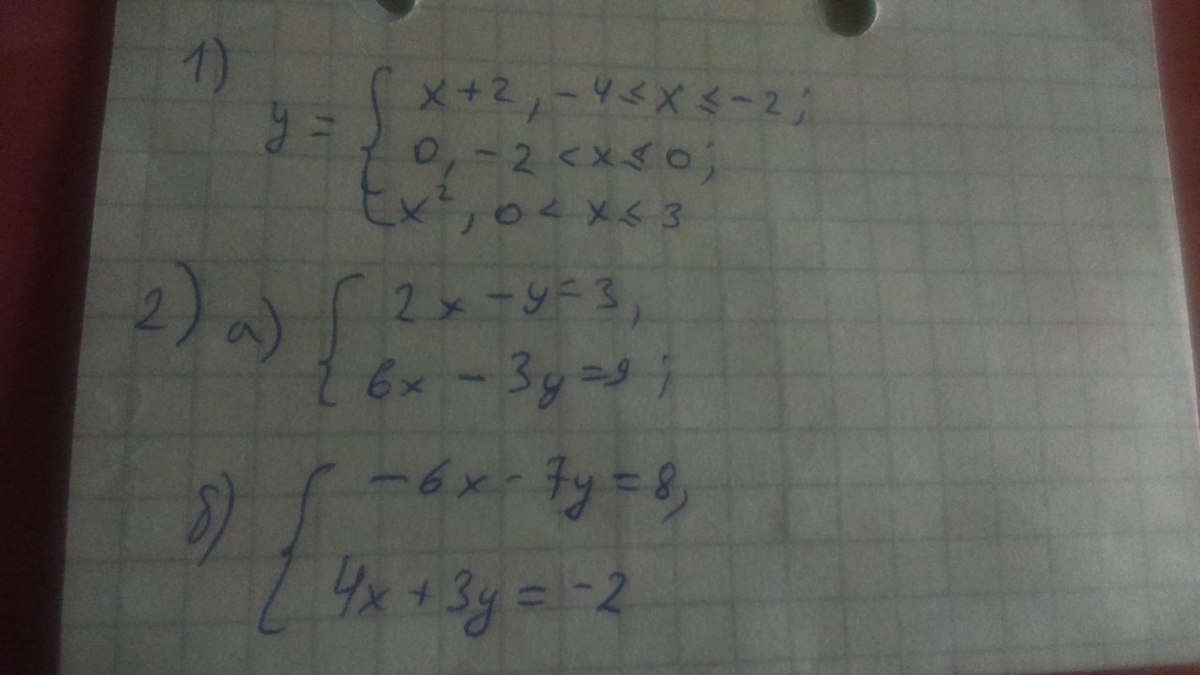 1)
y = { x+2, -4 ≤ x ≤ -2;
0, -2 < x ≤ 0;
x², 0 < x ≤ 3
2) а) { 2x - y = 3,
6x - 3y = 9;
б) { -6x - 7y = 8,
4x + 3y = -2